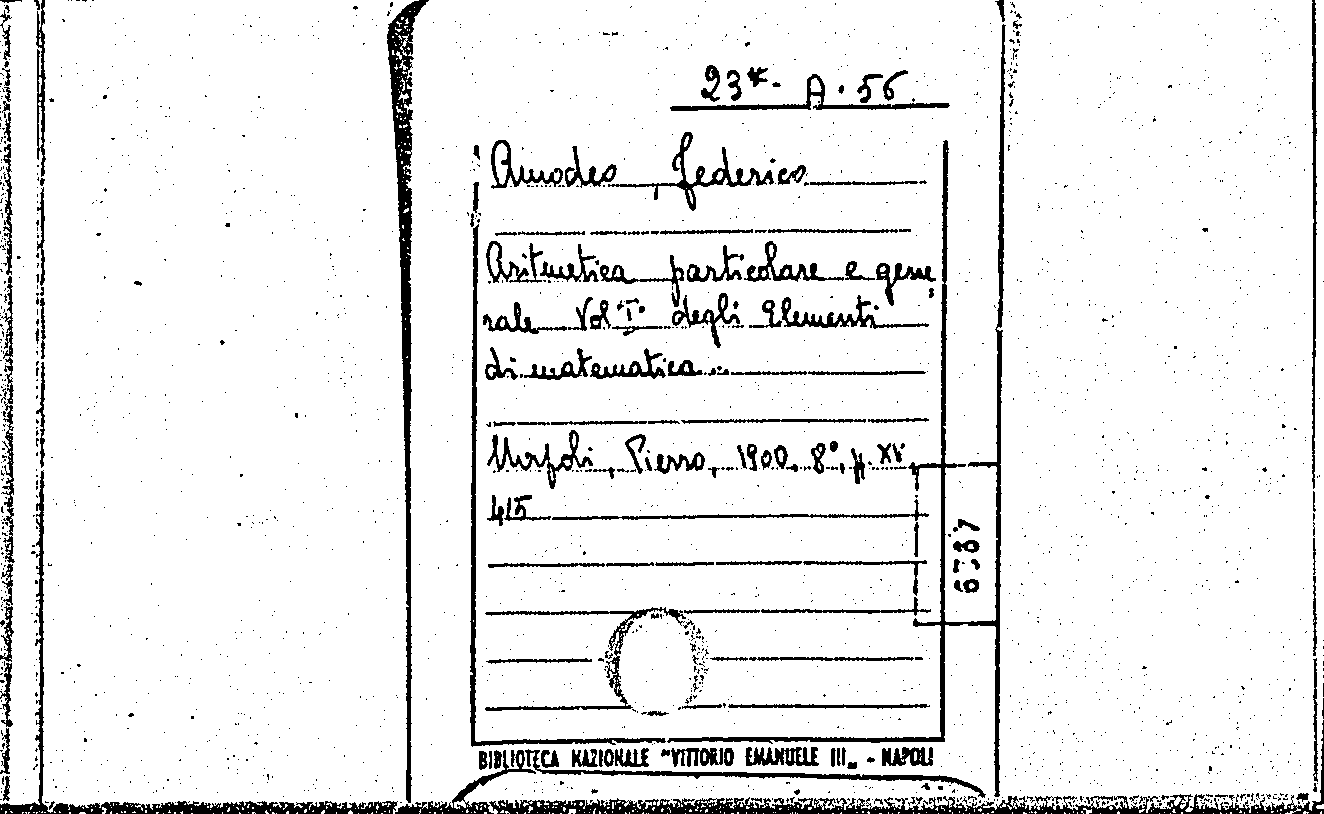 23*- A. 56
Amodeo, Federico
Aritmetica particolare e gene,
rale Vol I. degli Elementi
di matematica..
Napoli, Pierro, 1900. 8°, p. XV,
415
6787
BIBLIOTECA NAZIONALE "VITTORIO EMANUELE III„ - NAPOLI